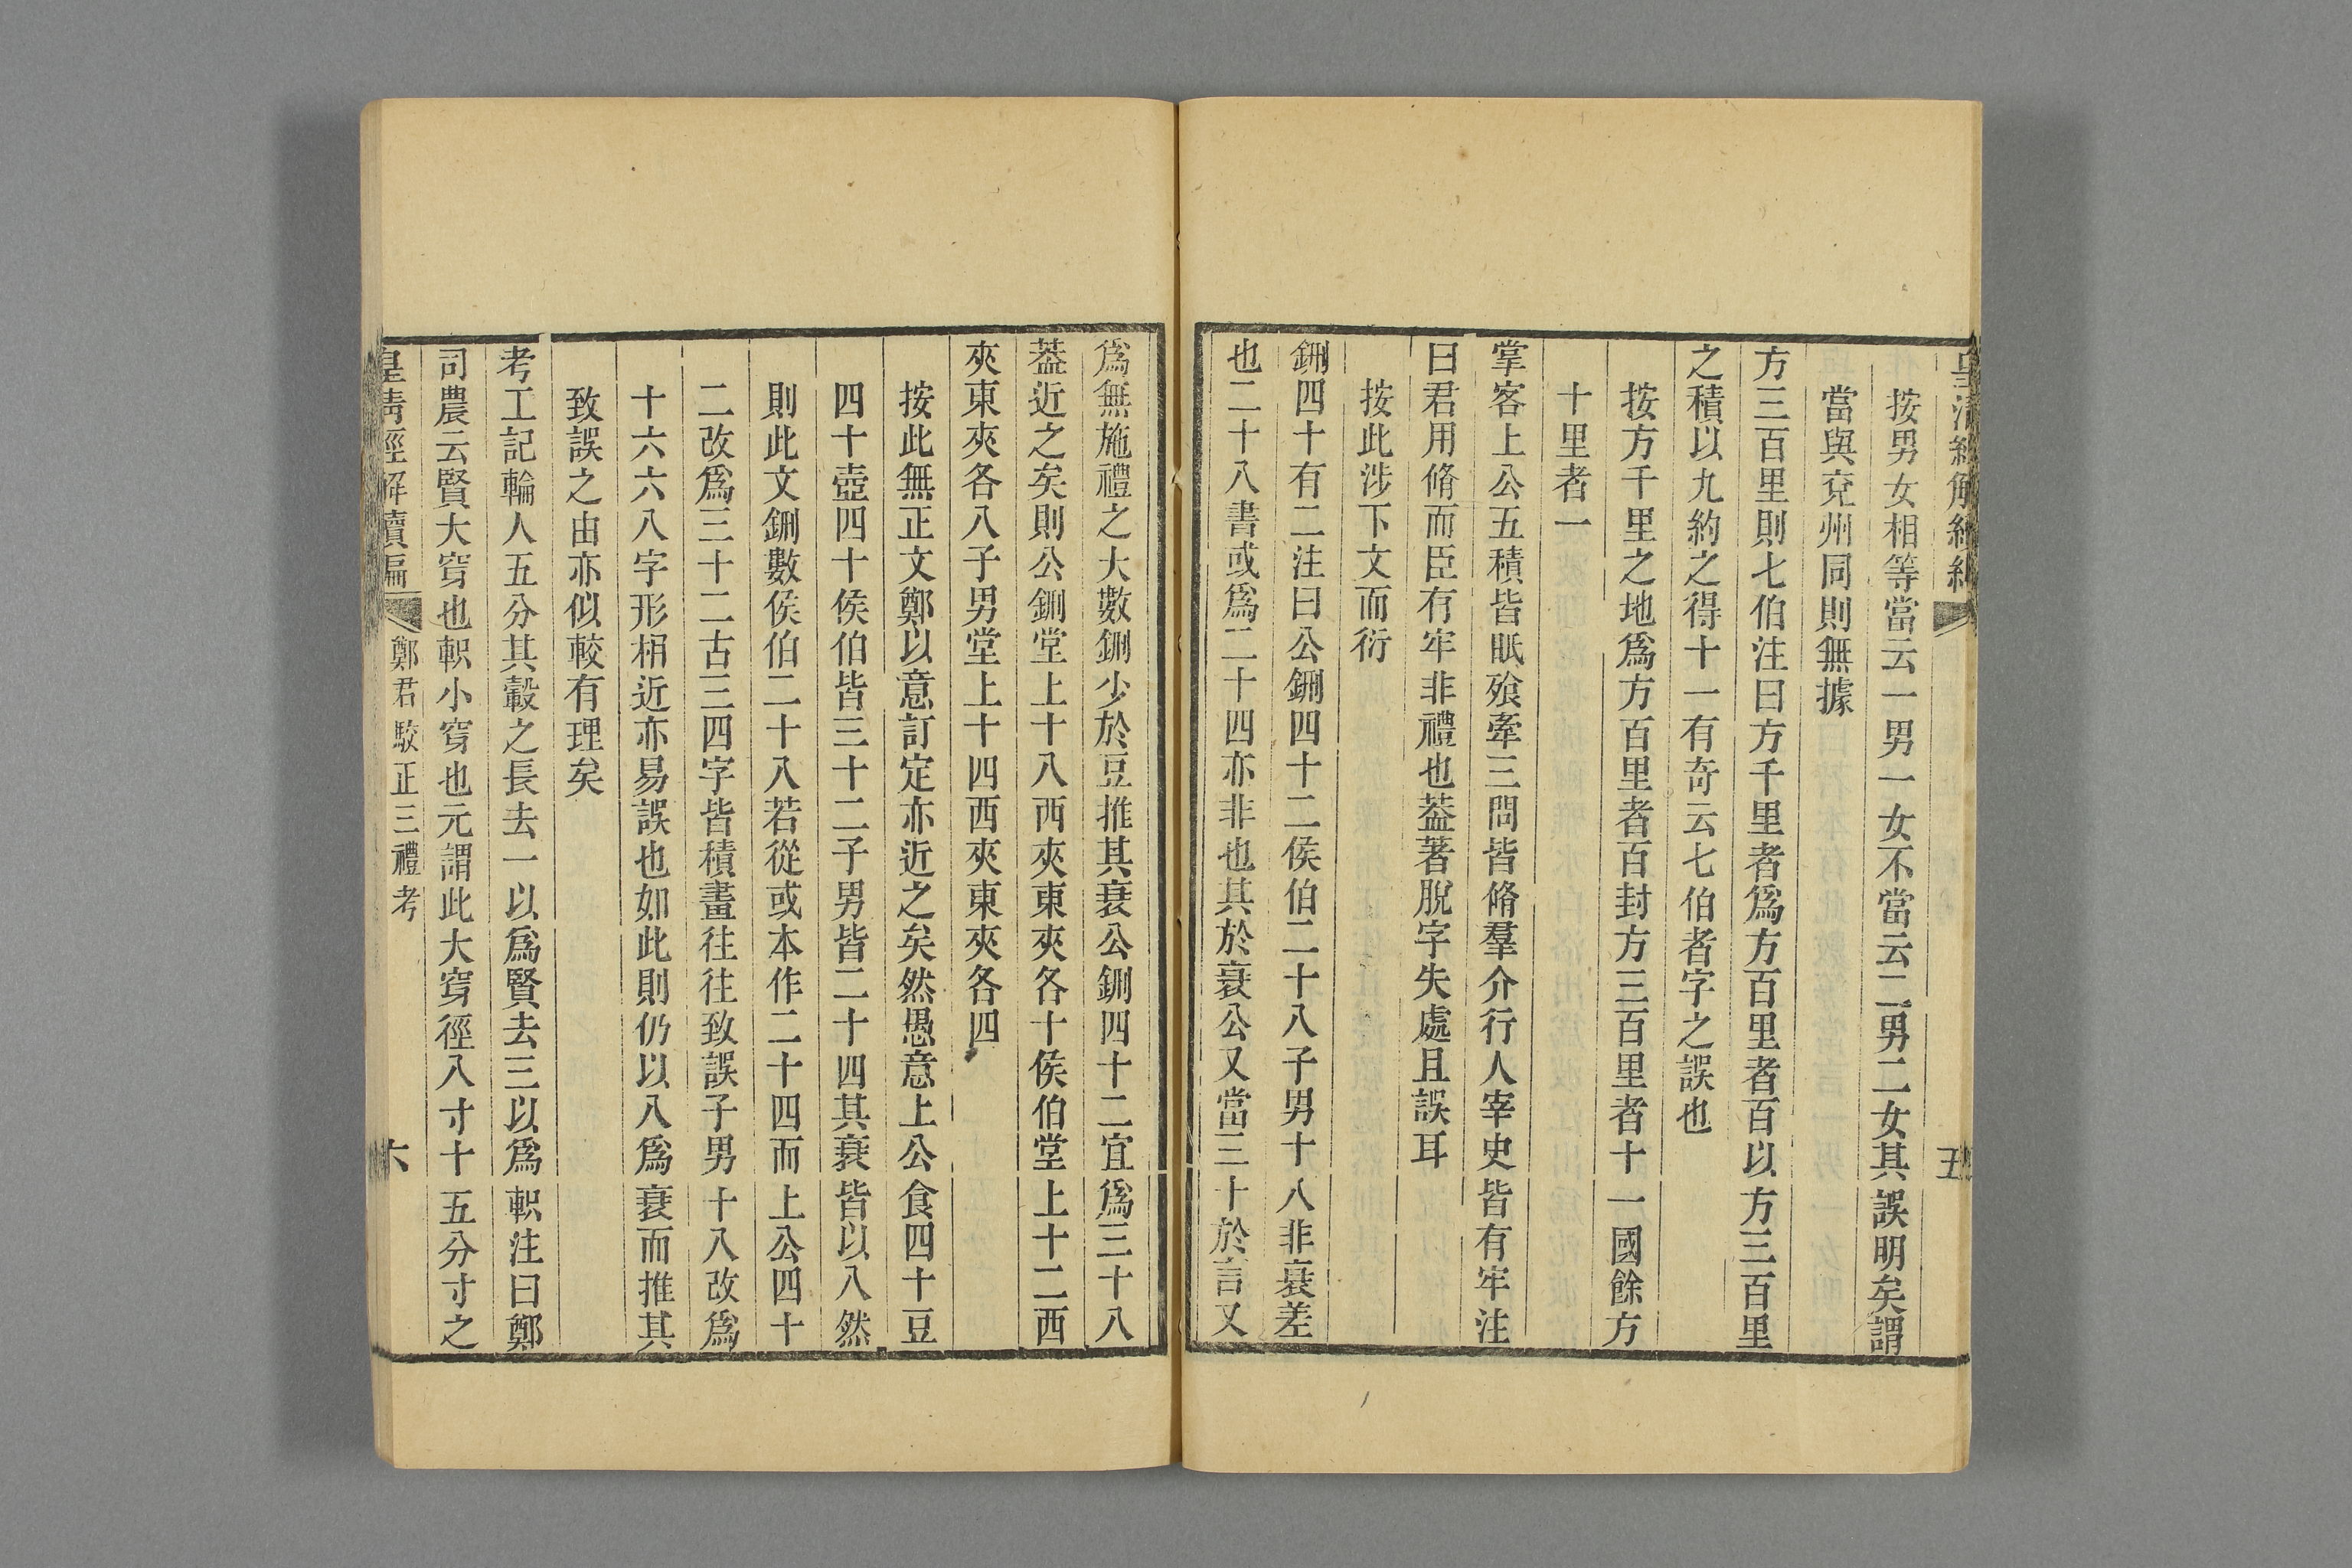 按男女相等當云一男一女不當云二男二女其誤明矣謂
當與兗州同則無據
方三百里則七伯注曰方千里者爲方百里者百以方三百里
之積以九約之得十一有奇云七伯者字之誤也
按方千里之地爲方百里者百封方三百里者十一國餘方
十里者一
掌客上公五積皆眡飱牽三問皆脩羣介行人宰史皆有牢注
曰君用脩而臣有牢非禮也葢著脫字失處且誤耳
按此涉下文而衍
鉶四十有二注曰公鉶四十二侯伯二十八子男十八非衰差
也二十八書或爲二十四亦非也其於衰公又當三十於言又
爲無施禮之大數鉶少於豆推其衰公鉶四十二宜爲三十八
葢近之矣則公鉶堂上十八西夾東夾各十侯伯堂上十二西
夾東夾各八子男堂上十四西夾東夾各四
按此無正文鄭以意訂定亦近之矣然愚意上公食四十豆
四十壺四十侯伯皆三十二子男皆二十四其衰皆以八然
則此文鉶數侯伯二十八若從或本作二十四而上公四十
二改爲三十二古三四字皆積畫往往致誤子男十八改爲
十六六八字形相近亦易誤也如此則仍以八爲衰而推其
致誤之由亦似較有理矣
考工記輪人五分其轂之長去一以爲賢去三以爲軹注曰鄭
司農云賢大穿也軹小穿也元謂此大穿徑八寸十五分寸之
皇清經解續編
鄭君駮正三禮考
六